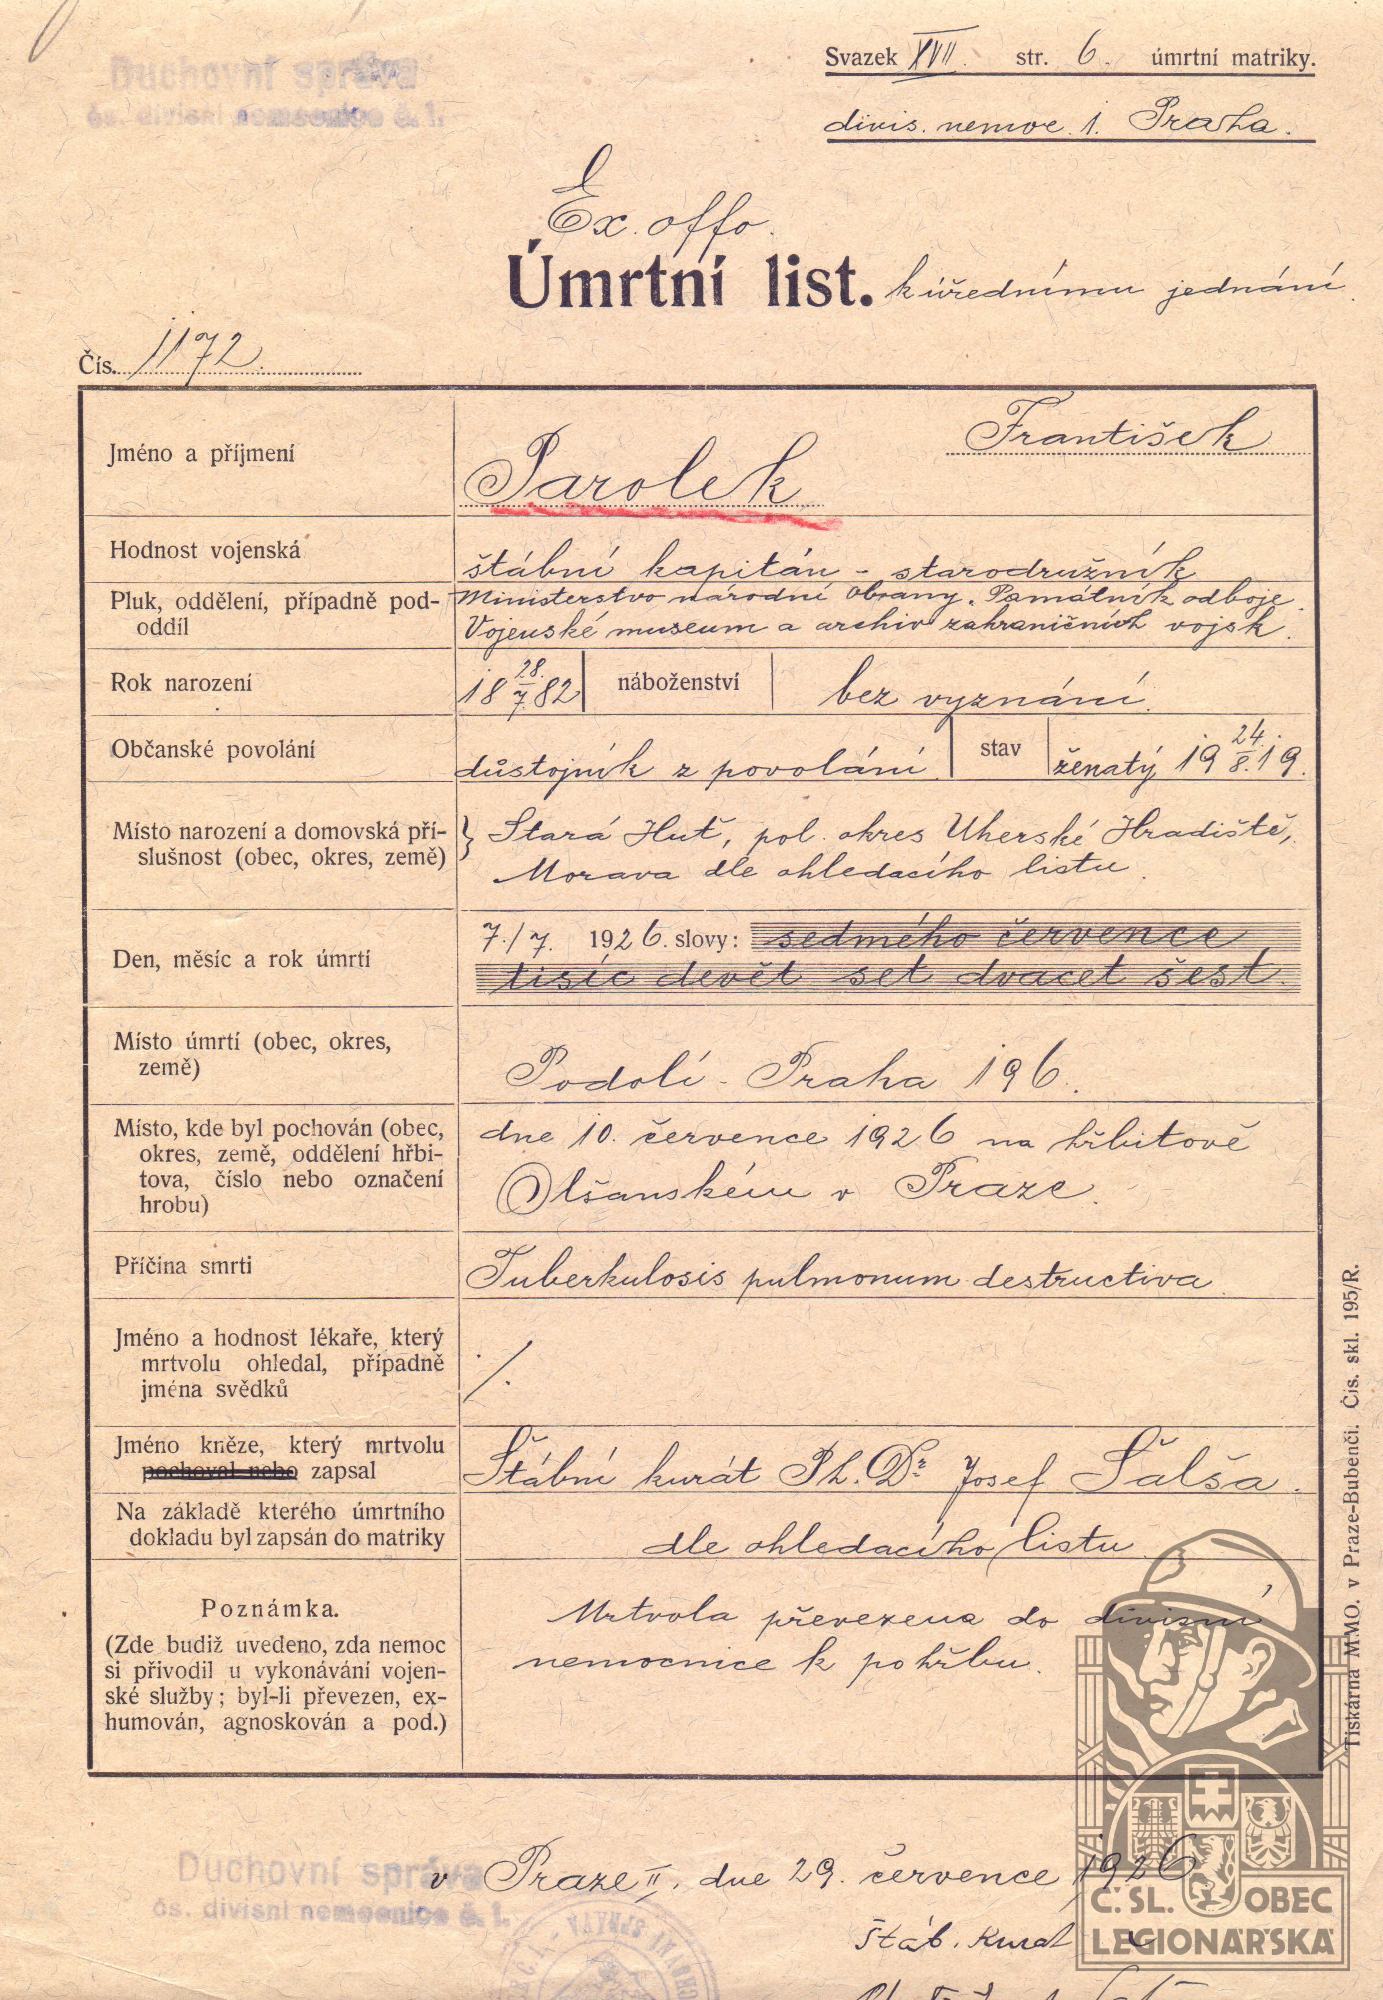 Duchovní správa
čs. divisní nemocnice č. 1.
Svazek XVII. str. 6. úmrtní matriky.
divis. nemoc. 1. Praha.
Ex offo.
Úmrtní list. k úřednímu jednání.
Čís. 1172.
Jméno a příjmení
František
Parolek
Hodnost vojenská
štábní kapitán - starodružník
Pluk, oddělení, případně pod-
oddíl
Ministerstvo národní Obrany. Památník odboje.
Vojenské museum a archiv zahraničních vojsk.
Rok narození
18 28./7. 82
náboženství
bez vyznání.
Občanské povolání
důstojník z povolání.
stav
ženatý 19 24./8. 19.
Místo narození a domovská pří-
slušnost (obec, okres, země)
Stará Huť, pol. okres Uherské Hradiště,
Morava dle ohledacího listu.
Den, měsíc a rok úmrtí
7./7. 1926. slovy: sedmého července
tisíc devět set dvacet šest.
Místo úmrtí (obec, okres,
země)
Podolí - Praha 196.
Místo, kde byl pochován (obec,
okres, země, oddělení hřbi-
tova, číslo nebo označení
hrobu)
dne 10. července 1926 na hřbitově
Olšanském v Praze.
Příčina smrti
Tuberkulosis pulmonum destructiva
Jméno a hodnost lékaře, který
mrtvolu ohledal, případně
jména svědků
./.
Jméno kněze, který mrtvolu
pochoval nebo zapsal
Štábní kurát Ph. Dr. Josef Šalša.
Na základě kterého úmrtního
dokladu byl zapsán do matriky
dle ohledacího listu
Poznámka.
(Zde budiž uvedeno, zda nemoc
si přivodil u vykonávání vojen-
ské služby; byl-li převezen, ex-
humován, agnoskován a pod.)
Mrtvola převezena do divisní
nemocnice k pohřbu.
Tiskárna MMO. v Praze-Bubenči. Čís. skl. 195/R.
Duchovní správa
čs. divisní nemocnice č. 1.
v Praze II, dne 29. července 1926
Štáb. kurát
Č.SL. OBEC
LEGIONÁŘSKÁ